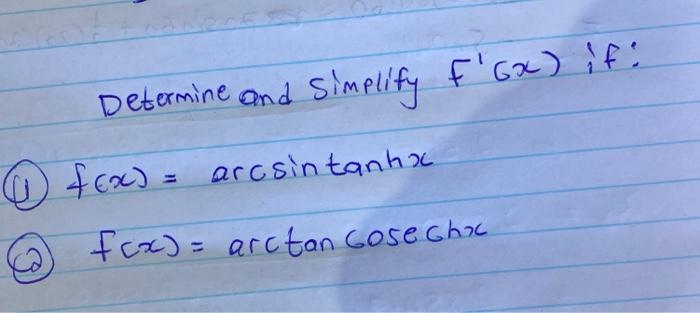 Determine and Simplify f'(x) if:
① f(x) = arcsin tanhx
② f(x) = arctan cosechx